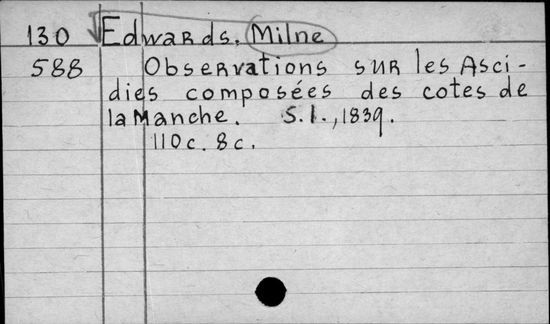 130 Edwards, Milne
588 Observations sur les Asci-
dies composées des cotes de
la Manche. S.l., 1839.
110c. 8c.